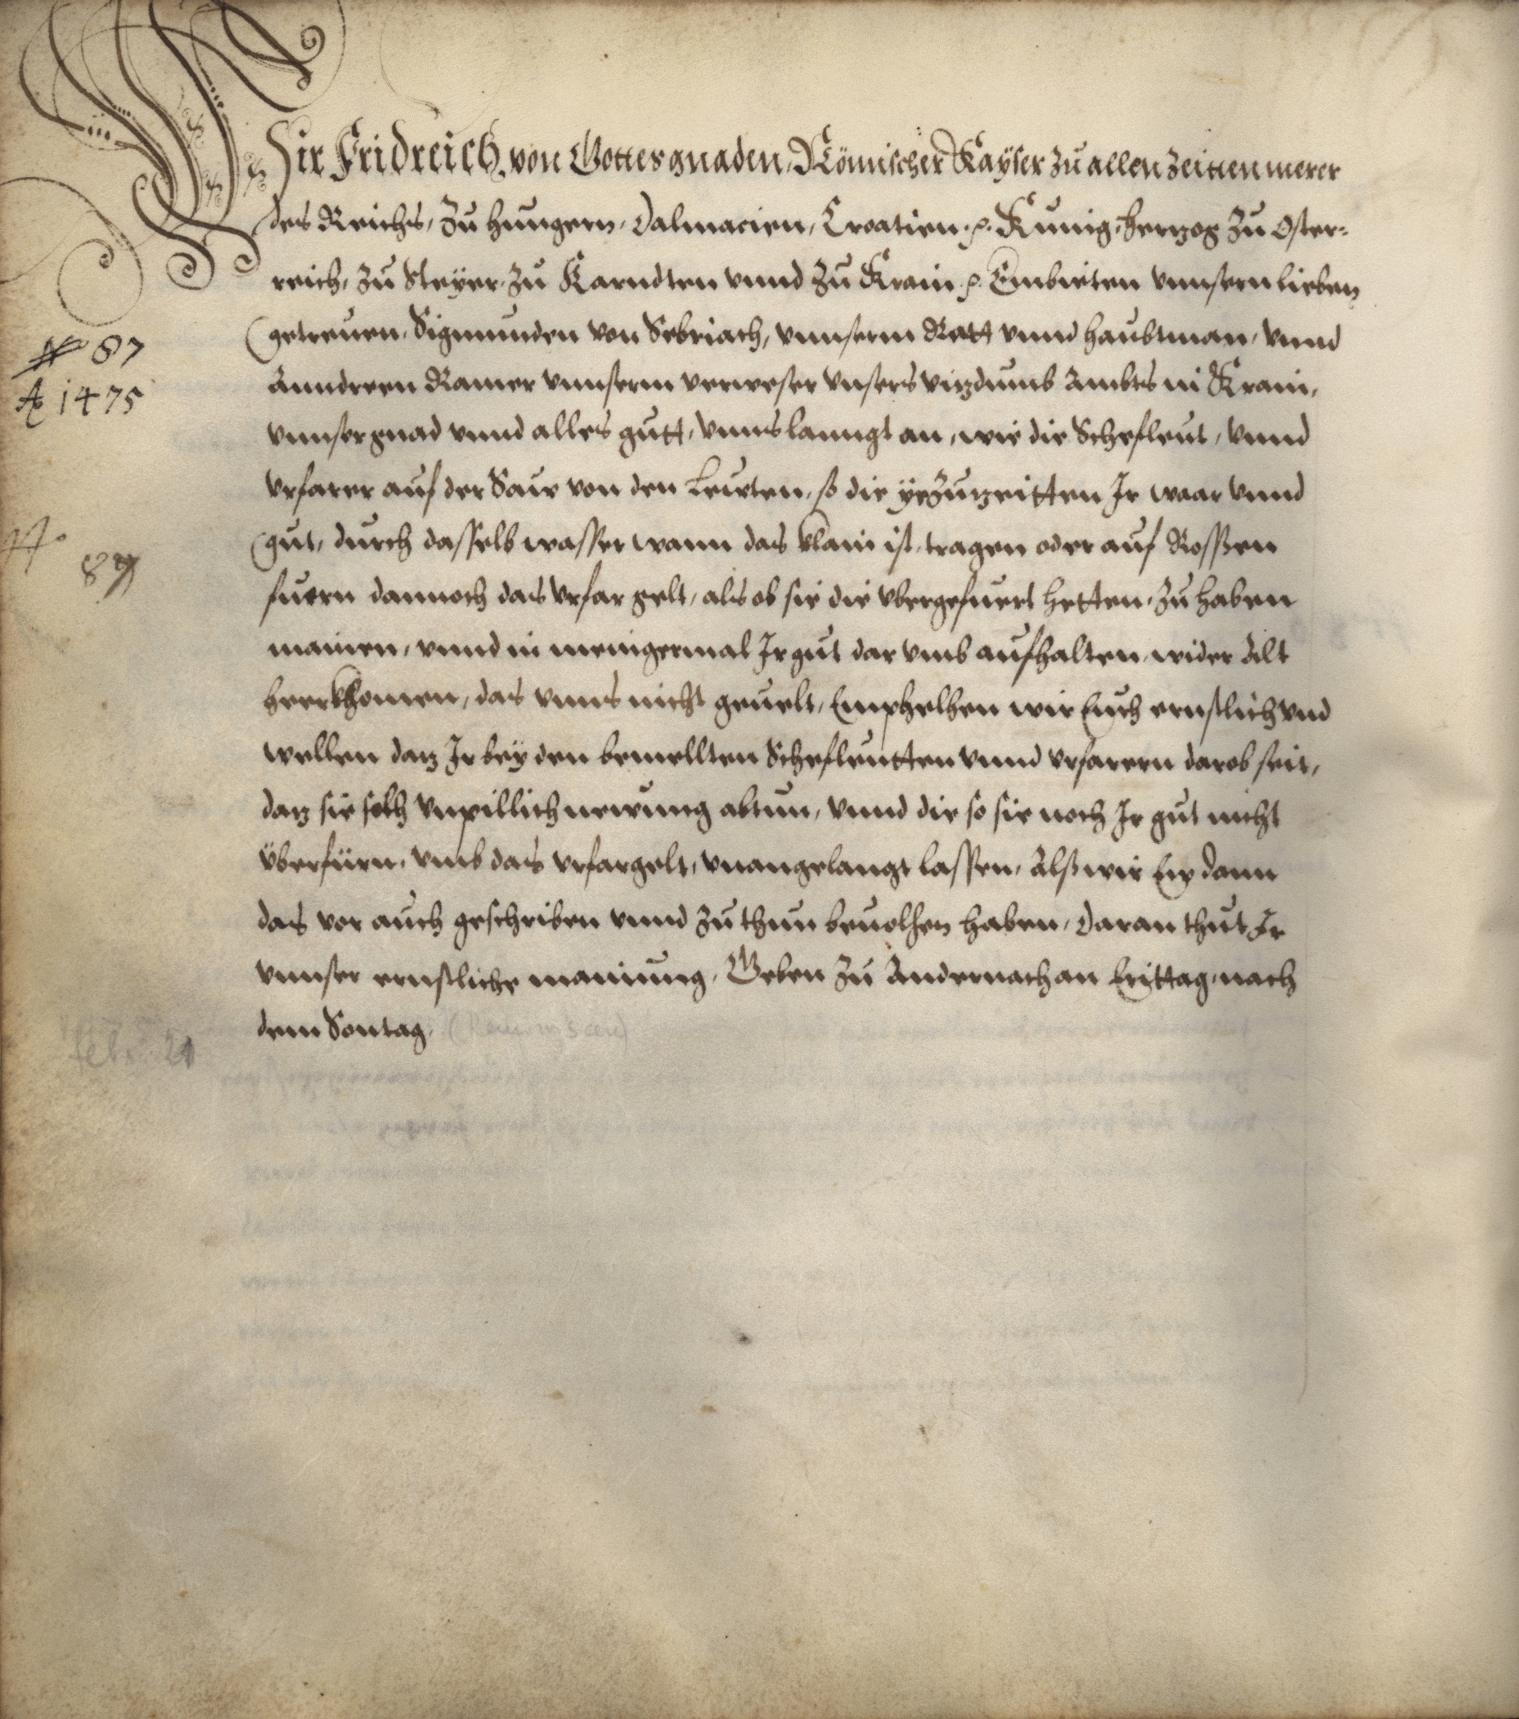 Wir Fridreich von Gottes gnaden, Römischer Kayser zu allen Zeitten merer
des Reichs, zu Hungern, Dalmacien, Croatien .p. Kunig, Hertzog zu Oster=
reich, zu Steyer, zu Karndten vnnd zu Krain .p. Embieten vnnsern lieben
getreuen, Sigmunden von Sebriach, vnnserm Ratt vnnd haubtman, vnnd
Anndreen Ramer vnnserm verweser vnsers vitzdumb Ambts in Krain,
vnnser gnad vnnd alles gutt, vnns lanngt an, wie die Schefleut, vnnd
vrfarer auf der Saw von den Leuten, so die yezuzeitten Ir waar vnnd
gut, durch dasselb wasser wann das klain ist, tragen oder auf Rossen
fuern dannoch das vrfar gelt, als ob sie die vbergefuert hetten, zu haben
mainen, vnnd in menigermal Ir gut dar vmb aufhalten, wider Alt
heerkhomen, das vnns nicht geuelt, Emphelhen wir Euch ernstlich vnd
wellen daz Ir bey den bemellten Schefleutten vnnd vrfarern darob seit,
daz sie solh vnpillich newung abtun, vnnd die so sie noch Ir gut nicht
überfürn, vmb das vrfargelt, vnangelangt lassen, Alß wir Ew dann
das vor auch geschriben vnnd zu thun beuolhen haben, daran thut Ir
vnnser ernstliche mainung, Geben zu Andernach an Erittag, nach
dem Sontag.
# 87
A 1475
87
febr. 21